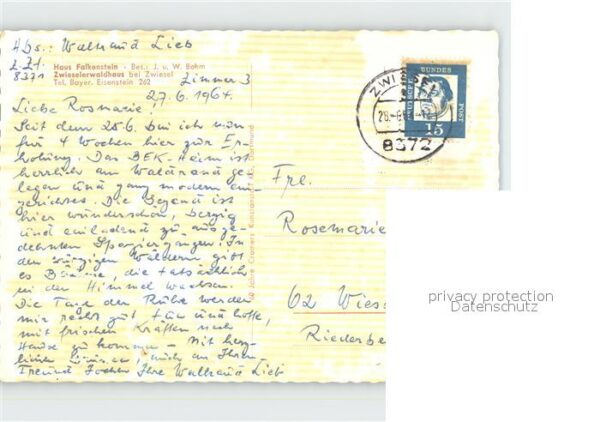 Abs: Waltraud Lieb
z.Zt.
Haus Falkenstein - Bes.: J. u. W. Bohm
8371 Zwieselerwaldhaus bei Zwiesel
Tel. Bayer. Eisenstein 262
Zimmer 3
27.6.1964.
Liebe Rosmarie!
Seit dem 25.6. bin ich nun
für 4 Wochen hier zur Er-
holung. Das BEK-Heim ist
herrlich am Waldrand ge-
legen und ganz modern ein-
gerichtet. Die Gegend ist
hier wunderschön, bergig
und einladend zu ausge-
dehnten Spaziergängen. In
den würzigen Wäldern gibt
es Bäume, die tatsächlich
in den Himmel wachsen.
Die Tage der Ruhe werden
mir recht gut tun und hoffe,
mit frischen Kräften nach
Hause zu kommen - Mit herz-
lichen Grüssen, auch an Ihren
Freund Jochen Ihre Waltraud Lieb
ZWIESEL
8372
DEUTSCHE BUNDESPOST
15
Frl.
Rosemarie
62 Wies
Riederbe
privacy protection
Datenschutz